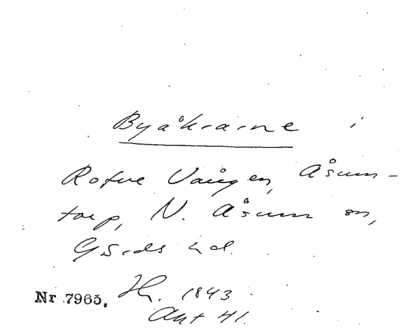 Byåkrarne i
Rotve Vången, Åsum-
torp, N. Åsum sn,
Gärds hd.
Nr 7965. Hr. 1843
Akt 41.